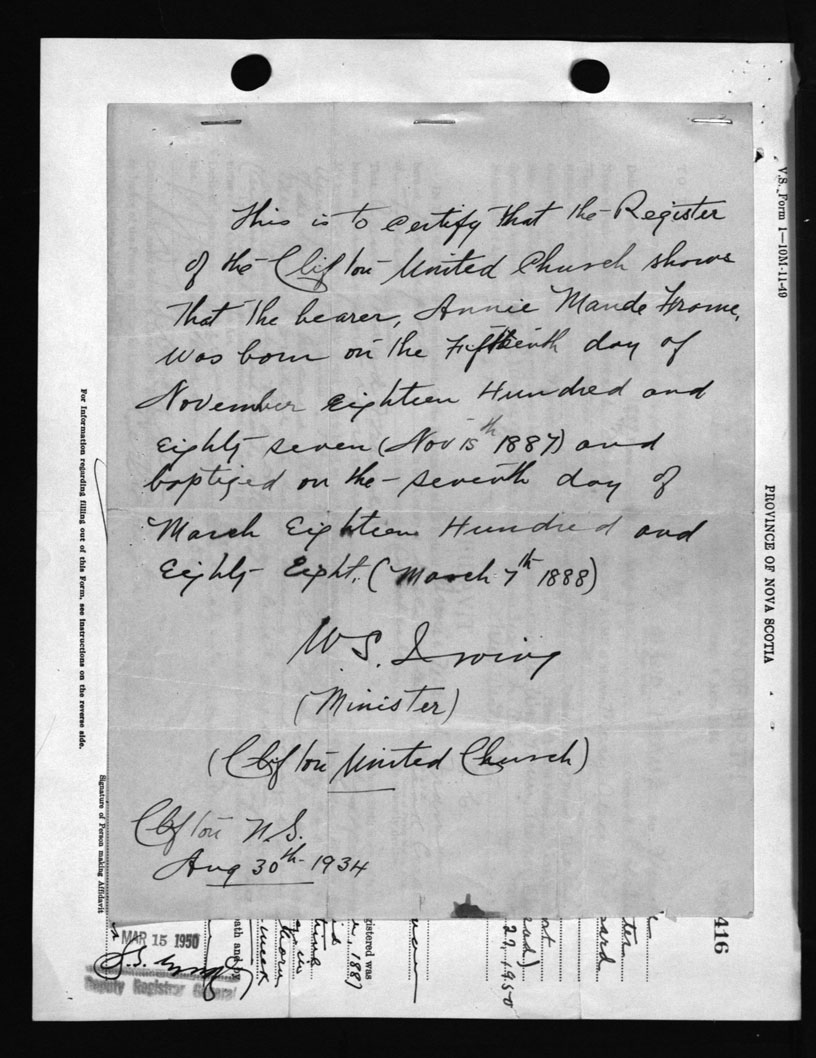 This is to certify that the Register
of the Clifton United Church shows
that the bearer, Annie Maude Frome,
was born on the Fifteenth day of
November Eighteen Hundred and
Eighty seven (Nov 15th 1887) and
baptized on the seventh day of
March Eighteen Hundred and
Eighty Eight. (March 7th 1888)
W S. Irving
(Minister)
(Clifton United Church)
Clifton N.S.
Aug 30th 1934
V.S. Form 1—10M-11-49
PROVINCE OF NOVA SCOTIA
416
29, 1950
gistered was
1887
week
oath and
For Information regarding filling out of this Form, see instructions on the reverse side.
Signature of Person making Affidavit
MAR 15 1950
Deputy Registrar General